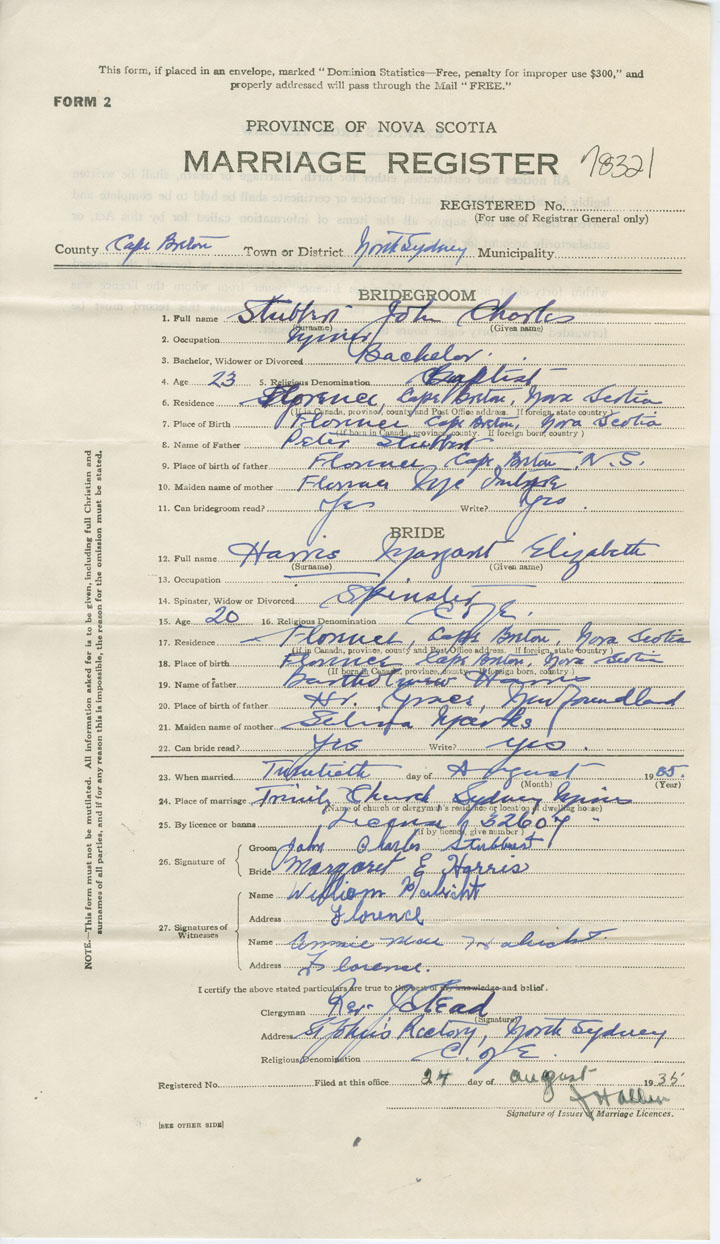 This form, if placed in an envelope, marked "Dominion Statistics—Free, penalty for improper use $300," and
properly addressed will pass through the Mail "FREE."
FORM 2
PROVINCE OF NOVA SCOTIA
MARRIAGE REGISTER 78321
REGISTERED No.
(For use of Registrar General only)
County Cape Breton Town or District North Sydney Municipality
BRIDEGROOM
1. Full name John Charles
(Surname) (Given name)
2. Occupation Miner
3. Bachelor, Widower or Divorced Bachelor
4. Age 23 5. Religious Denomination Baptist
6. Residence Florence, Cape Breton, Nova Scotia
(If in Canada, province, county and Post Office address. If foreign, state country)
7. Place of Birth Florence Cape Breton, Nova Scotia
(If born in Canada, province, county. If foreign born, country)
8. Name of Father Peter
9. Place of birth of father Florence Cape Breton, N.S.
10. Maiden name of mother Florence
11. Can bridegroom read? Yes Write? Yes
BRIDE
12. Full name Harris Margaret Elizabeth
(Surname) (Given name)
13. Occupation
14. Spinster, Widow or Divorced Spinster
15. Age 20 16. Religious Denomination C of E.
17. Residence Florence, Cape Breton, Nova Scotia
(If in Canada, province, county and Post Office address. If foreign, state country)
18. Place of birth Florence Cape Breton, Nova Scotia
(If born in Canada, province, county. If foreign born, country)
19. Name of father Bartholomew Harris
20. Place of birth of father Newfoundland
21. Maiden name of mother Selina
22. Can bride read? Yes Write? yes.
23. When married Twentieth day of August 1935.
(Month) (Year)
24. Place of marriage Trinity Church Sydney Mines
(Name of church or clergyman's residence or location of dwelling house)
25. By licence or banns License 32607
(If by licence, give number)
26. Signature of
Groom John Charles
Bride Margaret E Harris
27. Signatures of
Witnesses
Name William
Address Florence
Name Annie Mae
Address Florence.
I certify the above stated particulars are true to the best of my knowledge and belief.
Clergyman Rev J Stead
(Signature)
Address St John's Rectory, North Sydney
Religious Denomination C. of E.
Registered No. Filed at this office 24 day of august 1935
Signature of Issuer of Marriage Licences.
[SEE OTHER SIDE]
NOTE.—This form must not be mutilated. All information asked for is to be given, including full Christian and
surnames of all parties, and if for any reason this is impossible, the reason for the omission must be stated.